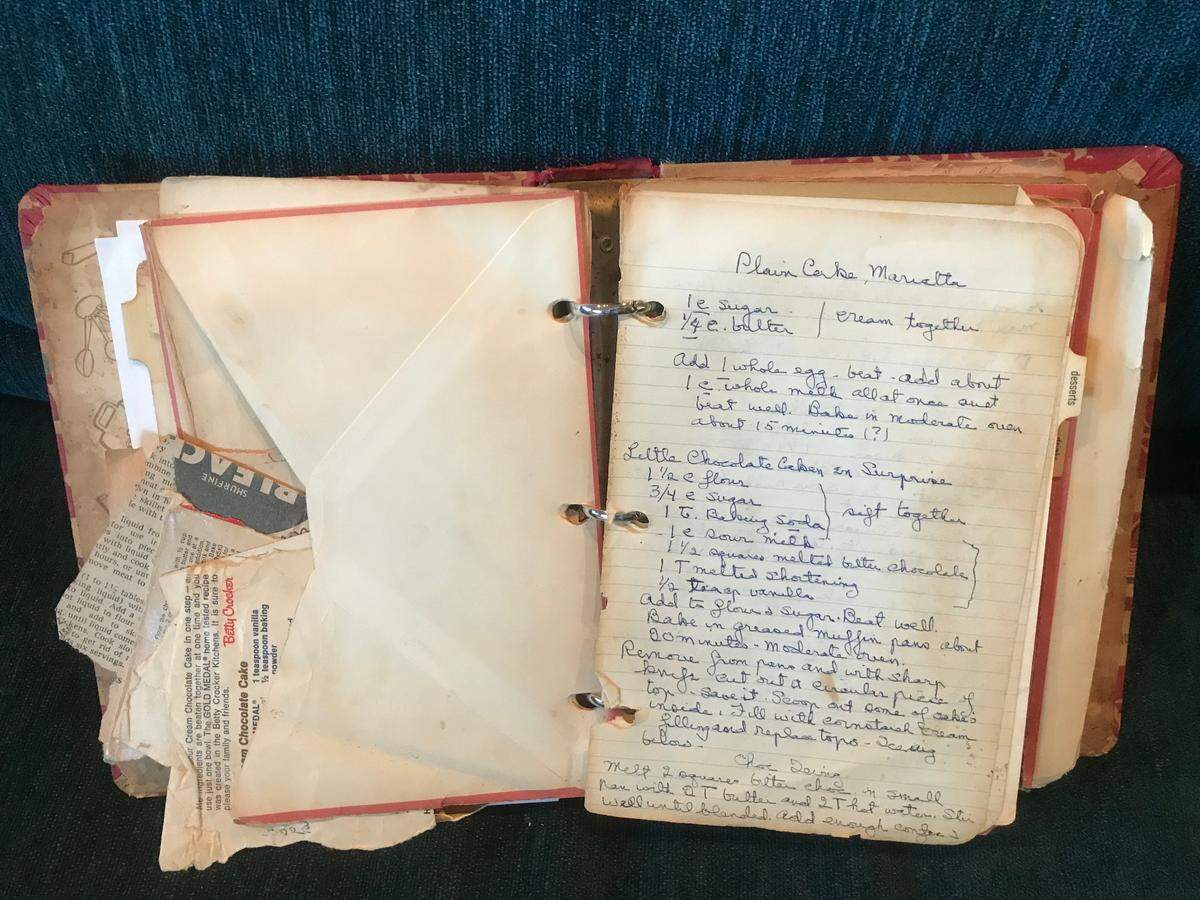 BLEAC
SHURFINE
liquid fro
for use i
into piec
with liquid
tly and cook
hours, or unt
move meat to
liquid) wit
liquid to flour
and add
until liquid
Cook slo
rid of
six servings.
our Cream Chocolate Cake in one step —
ingredients are beaten together at one time and you
use just one bowl. The GOLD MEDAL® home tested recipe
was created in the Betty Crocker Kitchens. It is sure to
please your family and friends.
Betty Crocker
am Chocolate Cake
MEDAL®
1 teaspoon vanilla
½ teaspoon baking
powder
desserts
Plain Cake, Marietta
1 c sugar
¼ c. butter
cream together
Add 1 whole egg - beat - add about
1 c. whole milk all at once and
beat well. Bake in moderate oven
about 15 minutes (?)
Little Chocolate Cakes en Surprise
1 ½ c flour
3/4 c sugar
1 t. Baking Soda
sift together
1 c sour milk
1 ½ squares melted bitter chocolate
1 T melted shortening
½ teasp vanilla
Add to flour & sugar. Beat well.
Bake in greased muffin pans about
20 minutes - Moderate oven.
Remove from pans and with sharp
knife cut out a circular piece of
top - save it. Scoop out some of cakes
inside. Fill with cornstarch cream
filling and replace tops - Icing
below -
Choc Icing
Melt 2 squares bitter choc in small
pan with 2 T butter and 2 T hot water. Stir
well until blended. Add enough confec s